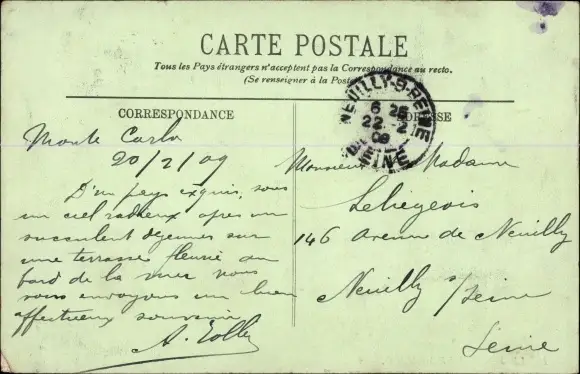 CARTE POSTALE
Tous les Pays étrangers n'acceptent pas la Correspondance au recto.
(Se renseigner à la Poste
CORRESPONDANCE
ADRESSE
NEUILLY-S-SEINE
6 25
22 - 2
09
SEINE
Monte Carlo
20/2/09
D'un pays exquis, sous
un ciel radieux après un
succulent déjeuner sur
une terrasse fleurie au
bord de la mer nous
vous envoyons un bien
affectueux souvenir
A.
Monsieur Madame
Leliégeois
146 Avenue de Neuilly
Neuilly s/Seine
Seine